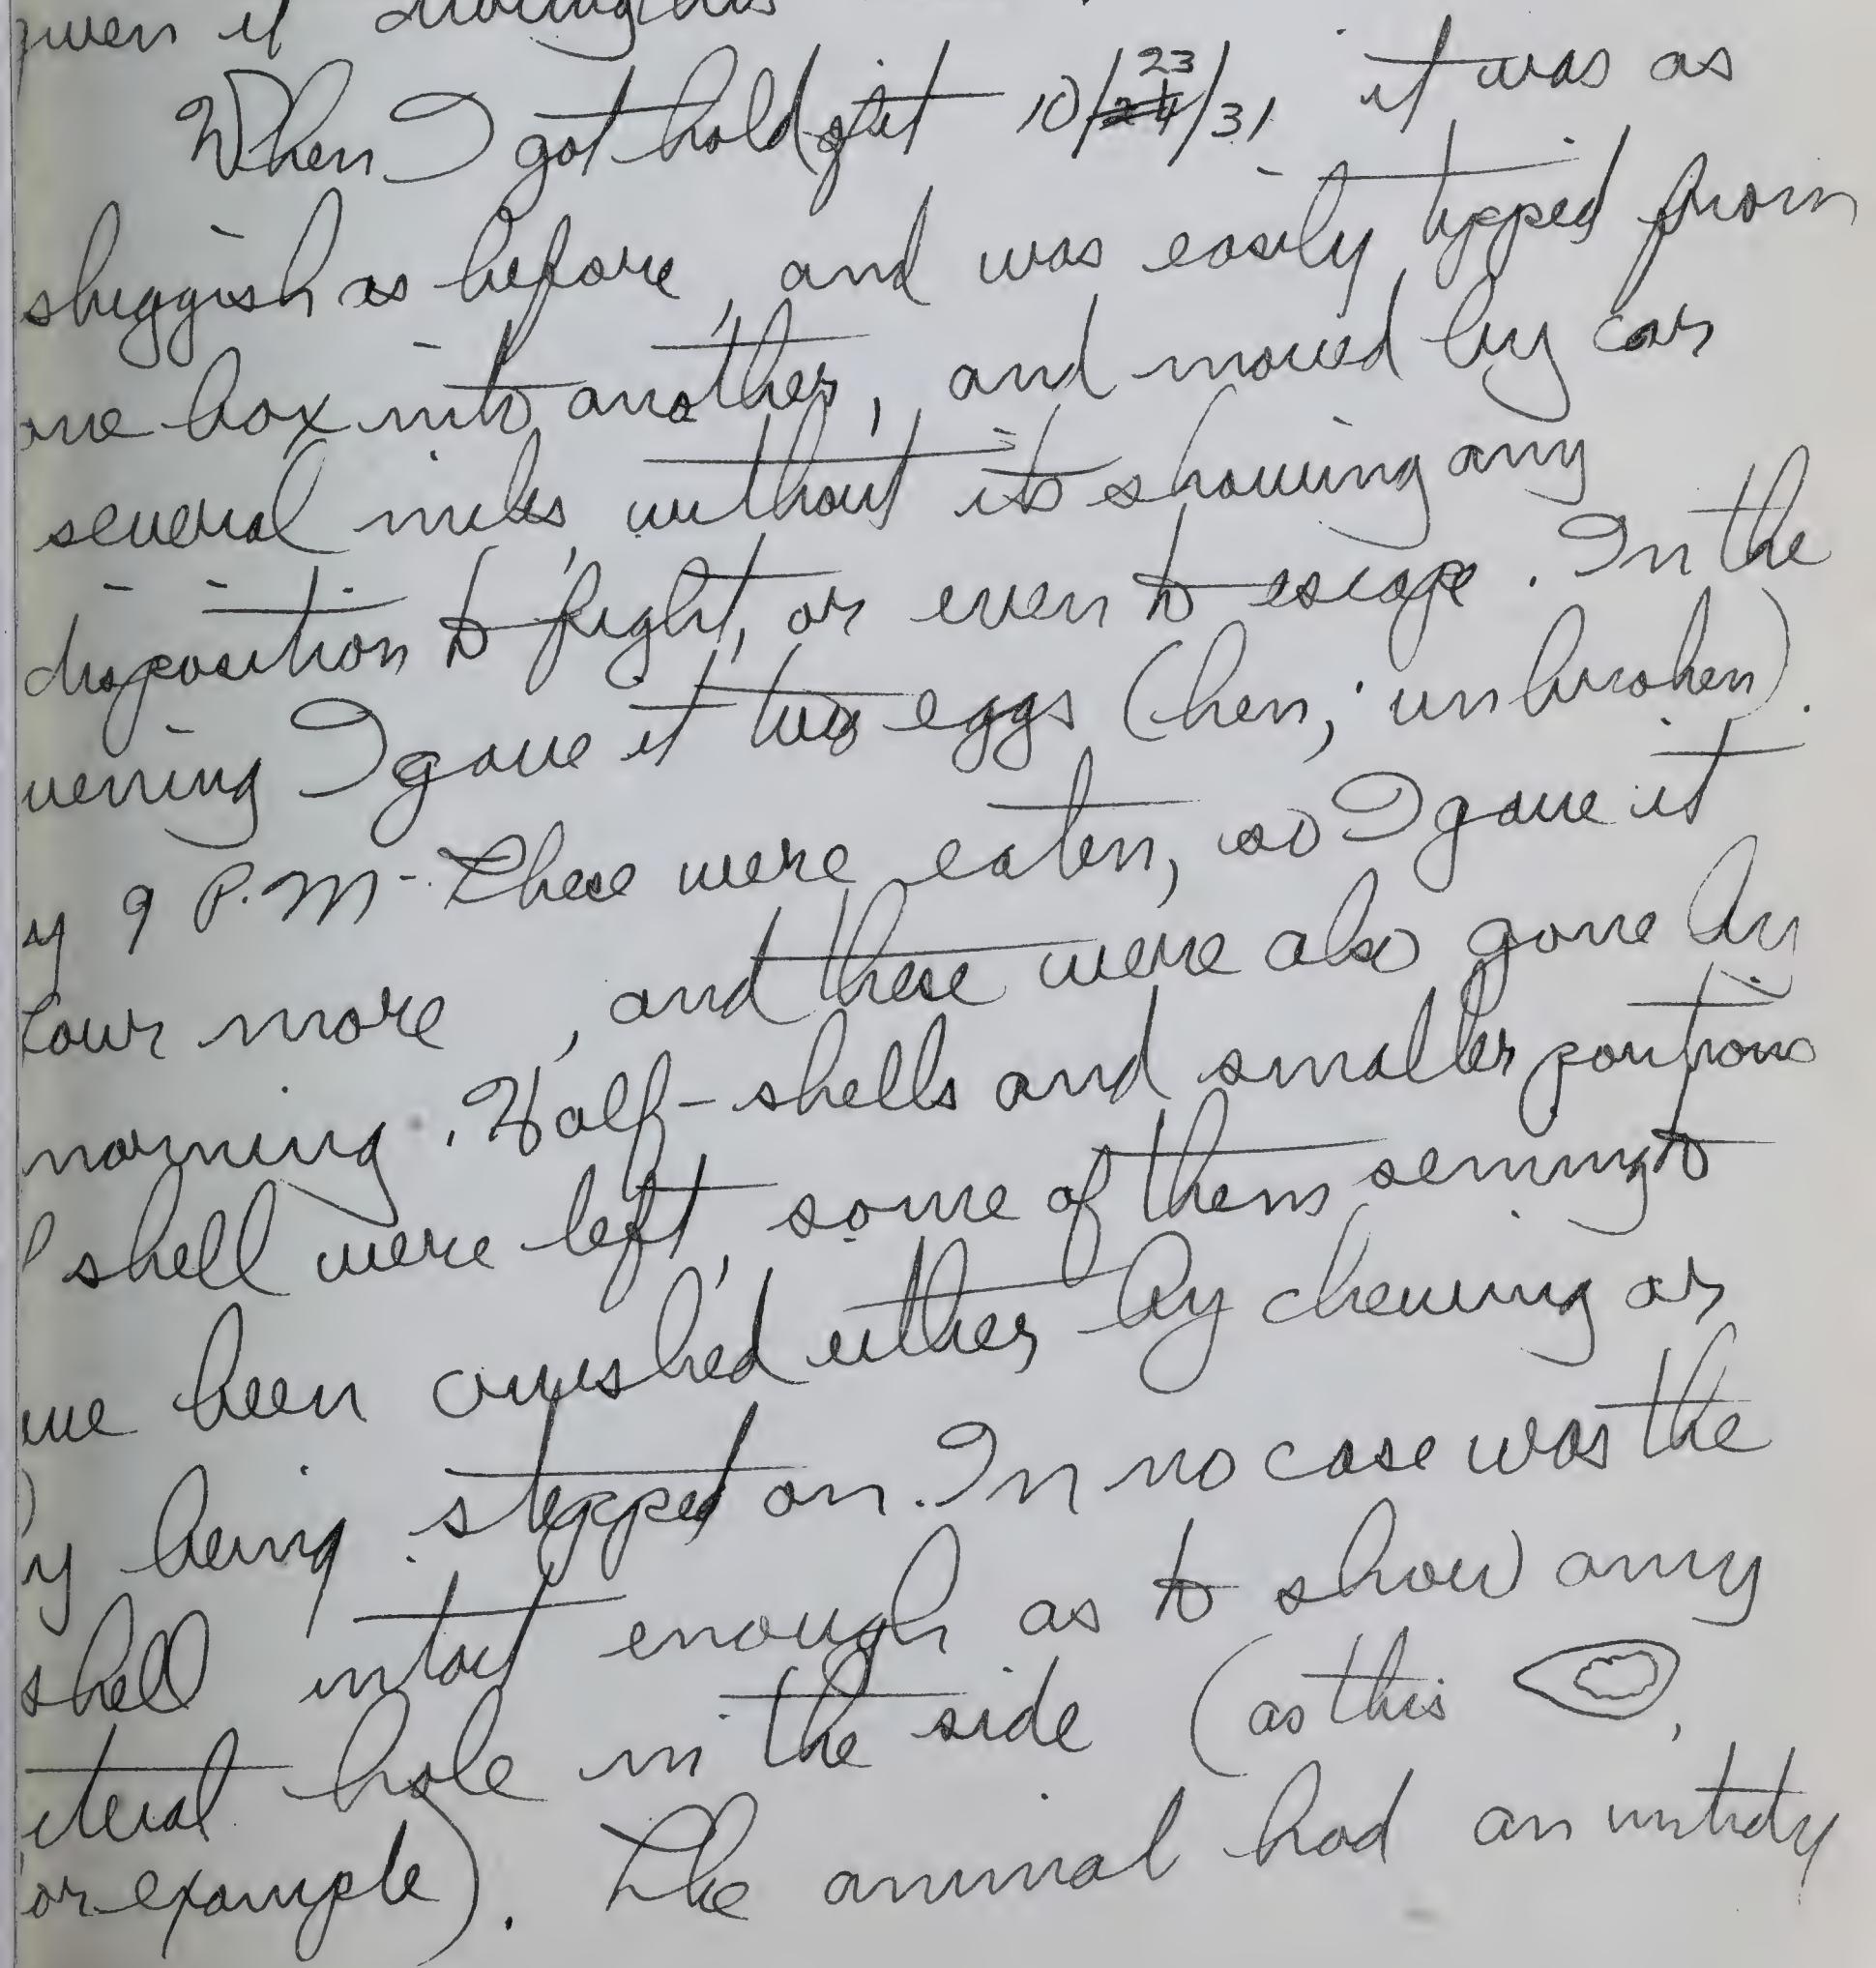 given it during his
When I got hold of it 10/23/31, it was as
sluggish as before, and was easily tipped from
one box into another, and moved by car
several miles, without its showing any
disposition to fight, or even to escape. In the
vening I gave it two eggs (hen; unbroken).
y 9 P.M. these were eaten, so I gave it
four more, and these were also gone by
morning. Half-shells and smaller portions
f shell were left, some of them seeming to
ave been crushed either by chewing or
y being stepped on. In no case was the
shell intact enough as to show any
ateral hole in the side (as this ,
or example). The animal had an untidy